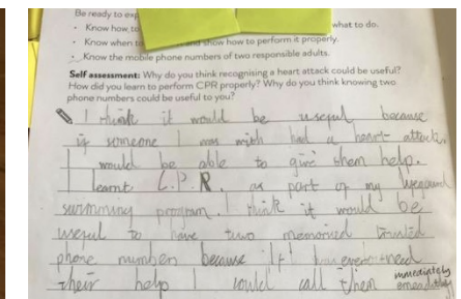 Be ready to exp
• Know how to what to do.
• Know when to and show how to perform it properly.
• Know the mobile phone numbers of two responsible adults.
Self assessment: Why do you think recognising a heart attack could be useful?
How did you learn to perform CPR properly? Why do you think knowing two
phone numbers could be useful to you?
I think it would be useful because
if someone I was with had a heart attack
I would be able to give them help.
I learnt C.P.R. as part of my
swimming program. I think it would be
useful to have two memorized trusted
phone numbers because if I ever need
their help I could call them immediately